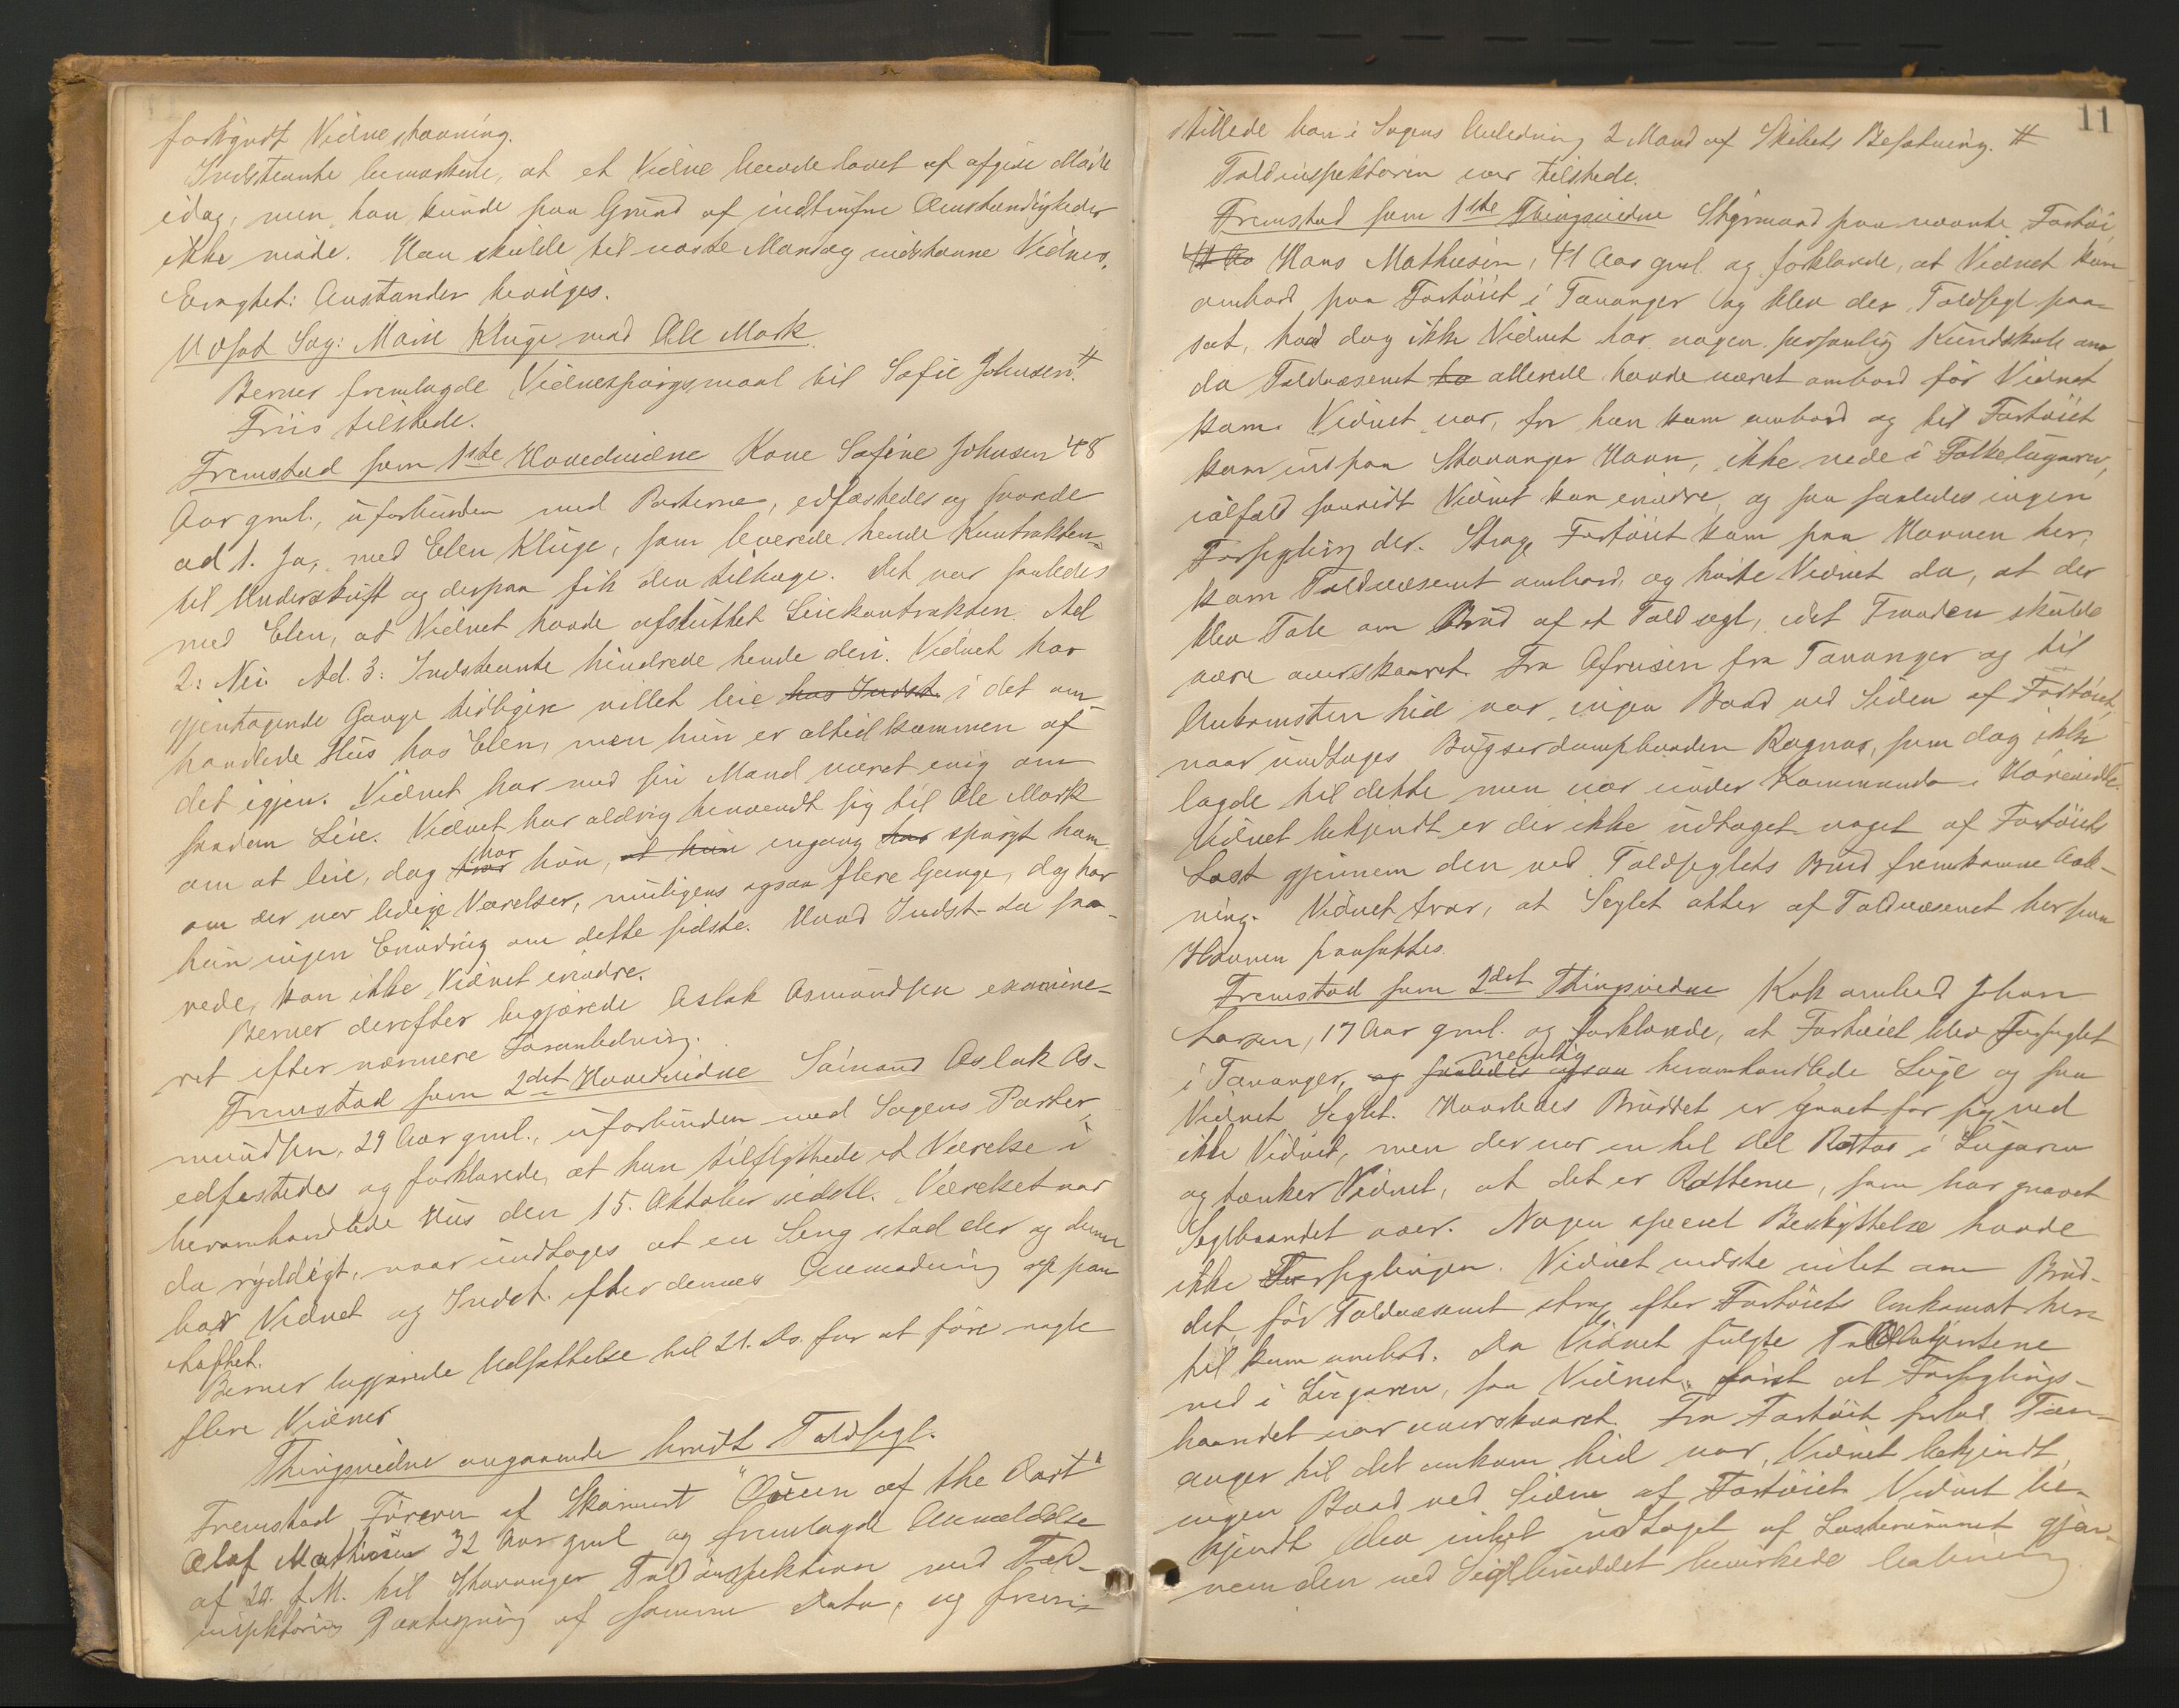 forkyndt Vidnestævning.
Indstevnte bemærkede, at et Vidne havde lovet at afgive Møde
idag, men han kunde paa Grund af indtrufne Omstændigheder
ikke møde. Han skulde til næste Mandag indstævne Vidnes.
Eragtet: Anstanden bevilges.
Udsat Sag: Marie Kluge mod Ole Mork.
Berner fremlagde Vidnespørgsmaal til Sofie Johnsen. #
Friis tilstede.
Fremstod som 1ste Hovedvidne Kone Sofine Johnsen 48
Aar gml., uforbunden med Parterne, edfæstedes og svarede
ad 1. Ja, med Elen Kluge, som leverede hende Kontrakten
til Underskrift og derpaa fik den tilbage. Det var saaledes
med Elen, at Vidnet havde afsluttet Leiekontrakten. Ad
2: Nei. Ad. 3: Indstevnte hindrede hende deri. Vidnet har
gjentagende Gange tidligere villet leie hos Indst. i det om-
handlede Hus hos Elen, men hun er altid kommen af
det igjen. Vidnet har med sin Mand været enig om
saadan Leie. Vidnet har aldrig henvendt sig til Ole Mork
om at leie, dog har hun, at hun engang har spurgt ham
om der var ledige Værelser, muligens ogsaa flere Gange, dog har
hun ingen Erindring om dette sidste. Hvad Indst. da sva-
rede, kan ikke Vidnet erindre.
Berner derefter begjærede Aslak Asmundsen examine-
ret efter nærmere Foranledning.
Fremstod som 2det Hovedvidne Sømand Aslak As-
mundsen, 29 Aar gml., uforbunden med Sagens Parter,
edfæstedes og forklarede, at han tilflyttede et Værelse i
heromhandlede Hus den 15. Oktober sidstl. Værelset var
da ryddigt, naar undtages at en Seng stod der og denne
bar Vidnet og Indst. efter dennes Anmodning op paa
Loftet.
Berner begjærede Udsættelse til 21. ds. for at føre nogle
flere Vidner
Thingsvidne angaaende brudt Toldsegl.
Fremstod Føreren af Skonnert "Queen of the Dart"
Olaf Mathiesen 32 Aar gml og fremlagde Anmeldelse
af 20. f. M. til Stavanger Toldinspektion med Told-
inspektørens Paategning af samme Dato, og frem-
11
stillede han i Sagens Anledning 2 Mand af Skibets Besætning. #
Toldinspektøren var tilstede.
Fremstod som 1ste Thingsvidne Styrmand paa nævnte Fartøi,
Hans Mathiesen, 41 Aar gml. og forklarede, at Vidnet kom
ombord paa Fartøiet i Tananger og blev der Toldsegl paa-
sat, hvad dog ikke Vidnet har nogen personlig Kundskab om
da Toldvæsenet ha allerede havde været ombord før Vidnet
kom. Vidnet var, fra han kom ombord og til Fartøiet
kom ind paa Stavanger Havn, ikke nede i Folkelugaren,
ialfald saavidt Vidnet kan erindre, og saa saaledes ingen
Forsegling der. Strax Fartøiet kom paa Havnen her,
kom Toldvæsenet ombord, og hørte Vidnet da, at der
blev Tale om Brud af et Toldsegl, idet Traaden skulde
være overskaaret. Fra Afreisen fra Tananger og til
Ankomsten hid var ingen Baad ved Siden af Fartøiet,
naar undtages Bugserdampbaaden Ragnar, som dog ikke
lagde til dette men var under Kommando i Hørevidde.
Vidnet bekjendt er der ikke udtaget noget af Fartøiets
Last gjennem den ved Toldseglets Brud fremkomne Aab-
ning. Vidnet tror, at Seglet atter af Toldvæsenet her paa
Havnen paasattes.
Fremstod som 2det Thingsvidne Kok ombord Johan
Larsen, 17 Aar gml. og forklarede, at Fartøiet blev forseglet
i Tananger, og saaledes ogsaa nemlig heromhandlede Luge og saa
Vidnet Seglet. Hvorledes Bruddet er gaaet for sig ved
ikke Vidnet, men der var en hel del Rotter i Lugaren
og tænker Vidnet, at det er Rotterne, som har gnavet
Seglbaandet over. Nogen speciel Beskyttelse havde
ikke Forseglingen. Vidnet vidste intet om Brud-
det, før Toldvæsenet strax efter Fartøiets Ankomst her-
til kom ombord. Da Vidnet fulgte Toldbetjentene
ned i Lugaren, saa Vidnet først at Forseglings-
baandet var overskaaret. Fra Fartøiet forlod Tan-
anger til det ankom hid var, Vidnet bekjendt,
ingen Baad ved Siden af Fartøiet. Vidnet be-
kjendt blev intet udtaget af Lasterummet gjen-
nem den ved Seglbruddet bevirkede Aabning